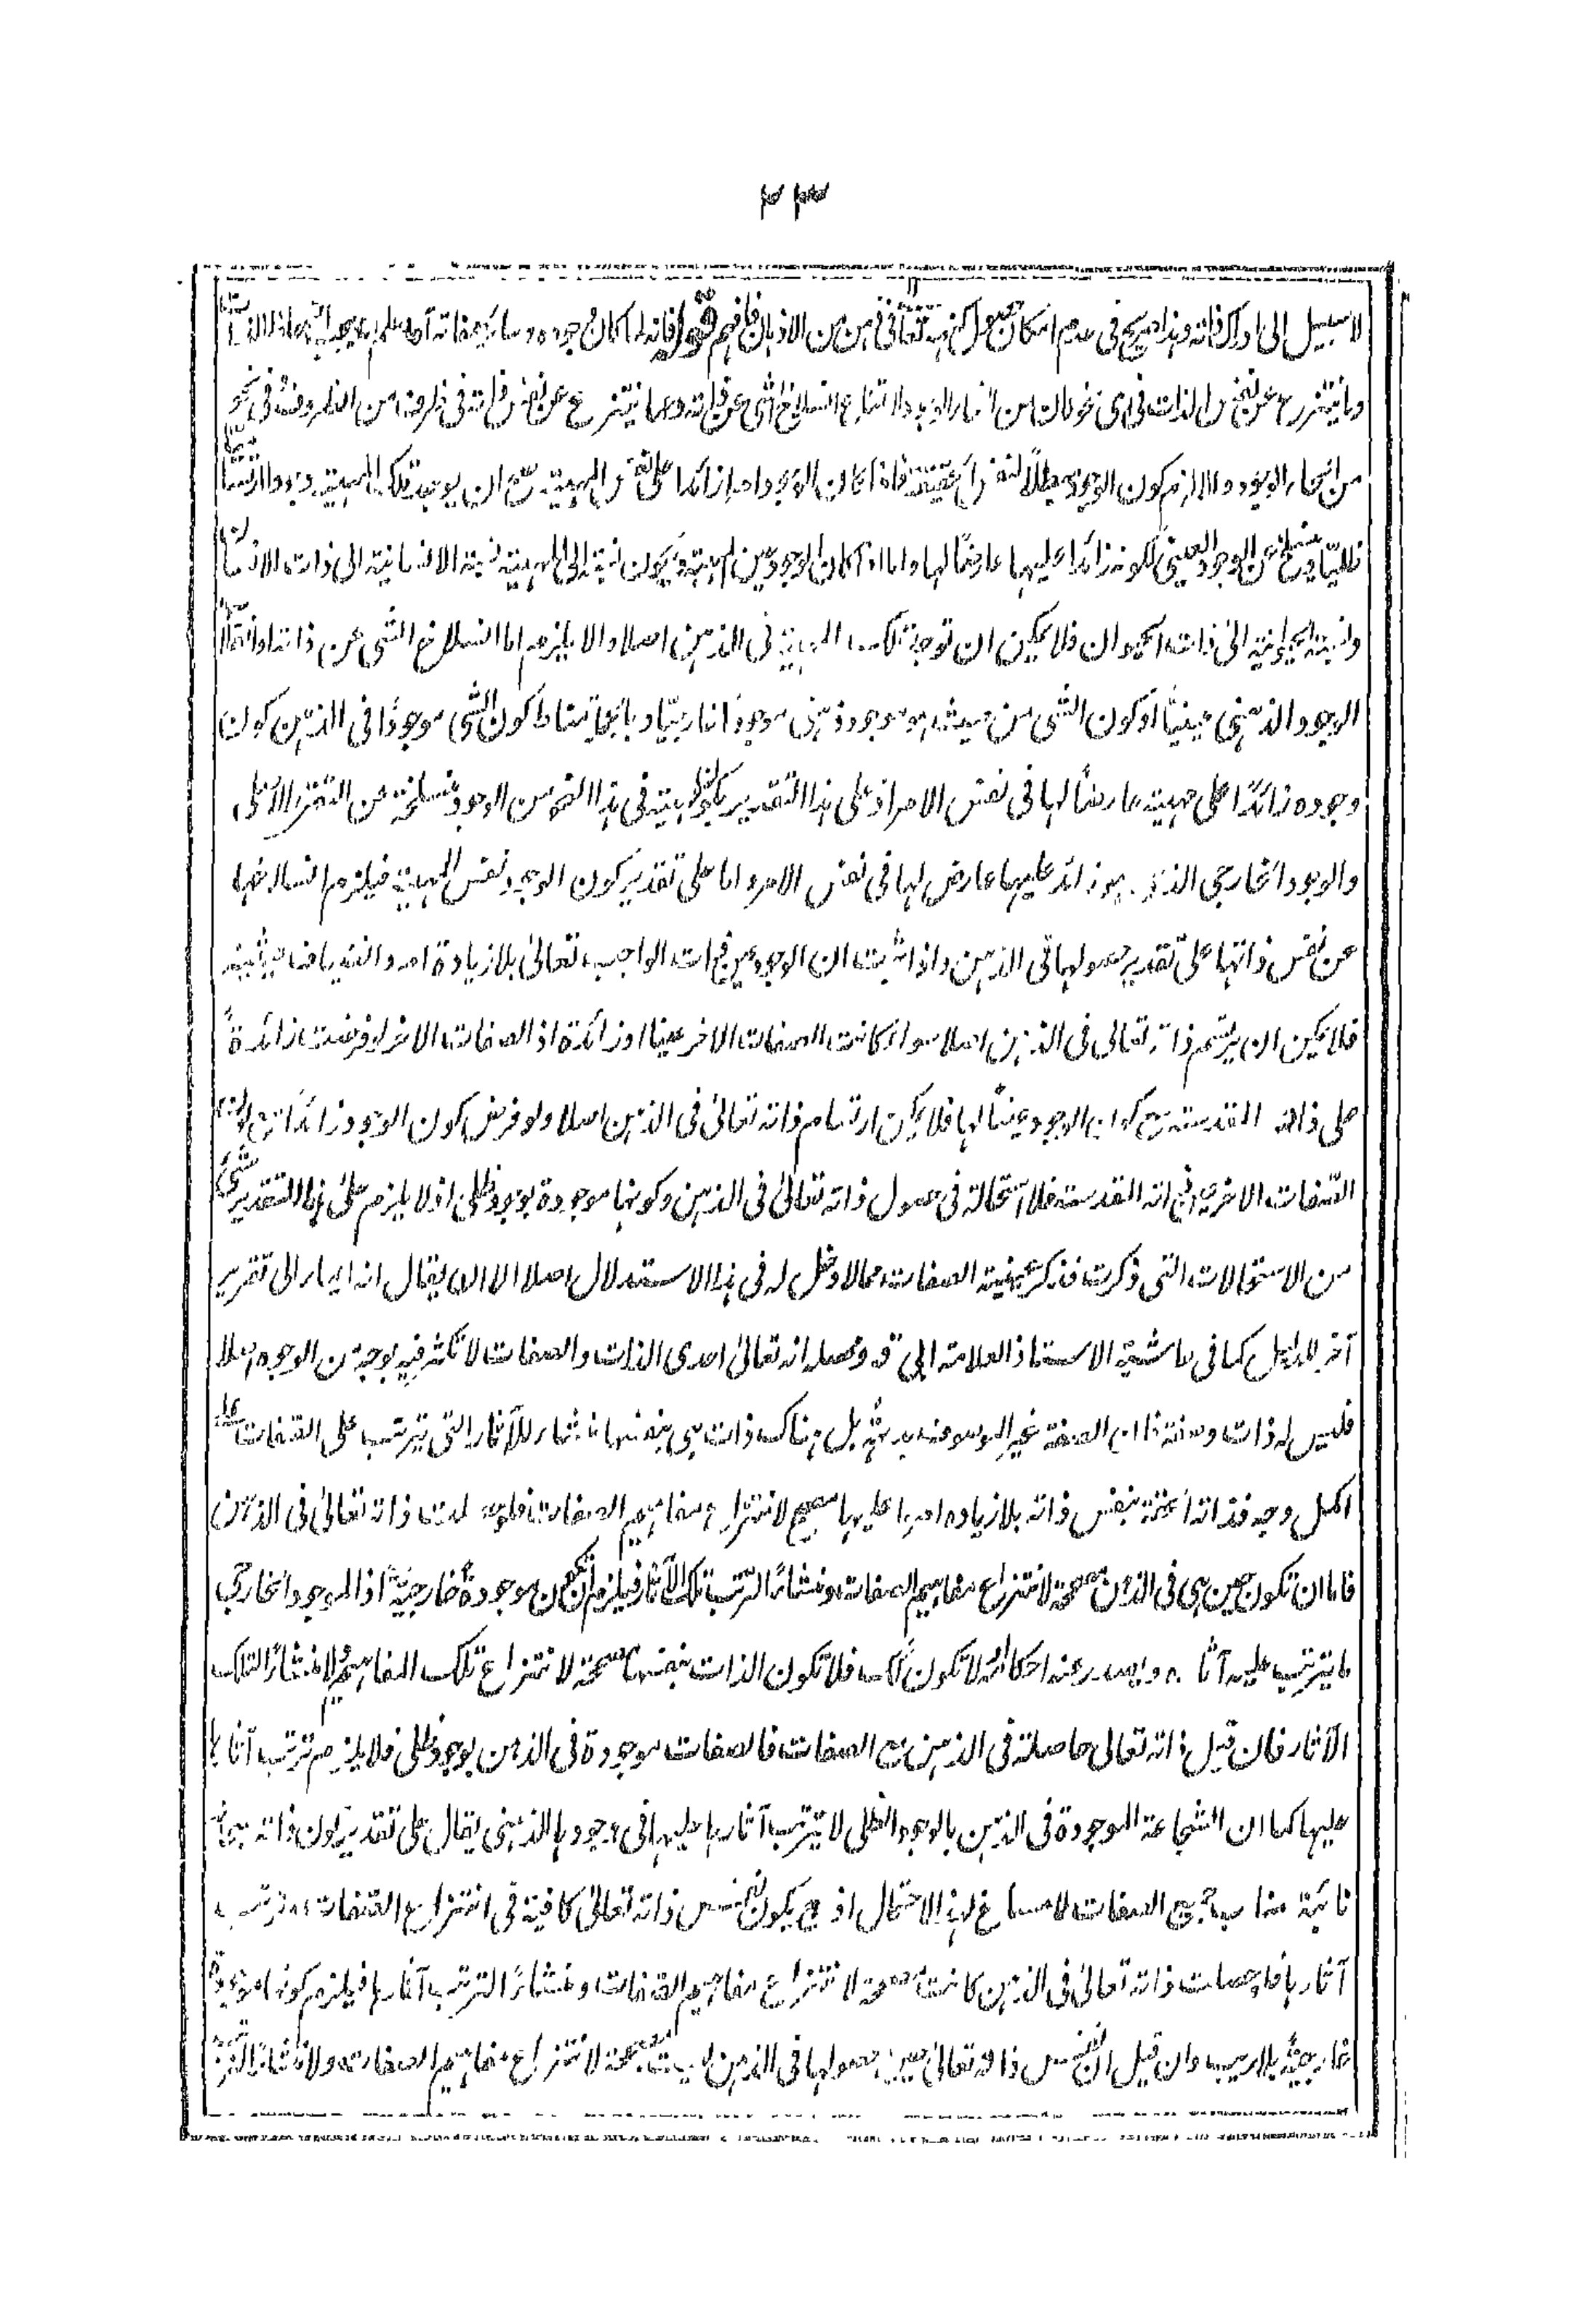 ٣٣
لا سبيل الى ادراك ذاته وهذا صريح في عدم امكان حصول كنهه تعالى في ذهن من الاذهان فافهم قوله فانه لما كان وجوده وسائر صفاته
وما ينتزع عن نفس الذات في اى نحو كان من انحاء الوجود لامتناع انسلاخ الشئ عن ذاته وعما ينتزع عن نفس ذاته في ظرف من الظروف وفي نحو
من انحاء الوجود والا لزم كون الوجود مبطلاً لنفس الحقيقة فاذا كان الوجود امرا زائدا على نفس المهية صح ان يوجد تلك المهية وجودا
ظليّا وينسلخ عن الوجود العينى لكونه زائدا عليها عارضًا لها واما اذا كان الوجود عين المهية ويكون نسبته الى المهية نسبة الانسانية الى ذات الانسان
ونسبة الحيوانية الى ذات الحيوان فلا يمكن ان توجد تلك المهية في الذهن اصلا والا يلزم اما انسلاخ الشئ عن ذاته او انقلاب
الوجود الذهنى عينيًا او كون الشئ من حيث هو موجود ذهنى موجودًا خارجيّا وبالجملة مناط كون الشئ موجودًا في الذهن كون
وجوده زائدًا على مهيته عارضًا لها في نفس الامر اذ على هذا التقدير يكون المهية في هذا النحو من الوجود منسلخة عن التقرر الاصلى
والوجود الخارجى الذى هو زائد عليها عارض لها في نفس الامر واما على تقدير كون الوجود نفس المهية فيلزم انسلاخها
عن نفس ذاتها على تقدير حصولها في الذهن واذا ثبت ان الوجود عين ذات الواجب تعالى بلا زيادة امر وانضياف حيثية
فلا يمكن ان يرتسم ذاته تعالى في الذهن اصلا سواء كانت الصفات الاخر عينا او زائدة اذ الصفات الاخر لو فرضت زائدة
على ذاته المقدسة مع كون الوجود عينًا لها فلا يمكن ارتسام ذاته تعالى في الذهن اصلا ولو فرض كون الوجود زائدا مع عينية
الصفات الاخرى لذاته المقدسة فلا استحالة في حصول ذاته تعالى في الذهن وكونها موجودة بوجود ظلى اذ لا يلزم على هذا التقدير شئ
من الاستحالات التى ذكرت فذكر عينية الصفات مما لا دخل له في هذا الاستدلال اصلا الا ان يقال انه اشار الى تقرير
آخر للدليل كما في حاشية الاستاذ العلامة ابى قد ومحصله انه تعالى احدى الذات والصفات لا تكثر فيه بوجه من الوجوه اصلا
فليس له ذات وصفة اذ الصفة غير الموصوف بل هناك ذات هى بنفسها منشأ للآثار التى تترتب على الصفات على
اكمل وجه فذاته الحقة بنفس ذاته بلا زيادة امر ما عليها مصحح لانتزاع مفاهيم الصفات فلو حصلت ذاته تعالى في الذهن
فاما ان تكون حين هى في الذهن مصححة لانتزاع مفاهيم الصفات ومنشأ لترتب تلك الآثار فيلزم ان تكون موجودة خارجية اذ الموجود الخارجى
ما يترتب عليه آثاره ويصدر عنه احكامه او لا تكون كذلك فلا تكون الذات بنفسها مصححة لانتزاع تلك المفاهيم ولا منشأ لتلك
الآثار فان قيل ذاته تعالى حاصلة في الذهن مع الصفات فالصفات موجودة في الذهن بوجود ظلى فلا يلزم ترتب آثارها
عليها كما ان الشجاعة الموجودة في الذهن بالوجود الظلى لا يترتب آثارها عليها في وجودها الذهنى يقال على تقدير كون ذاته تعالى
نائبة مناب جميع الصفات لا مساغ لهذا الاحتمال اذ ح يكون نفس ذاته تعالى كافية في انتزاع الصفات وترتب
آثارها فلو حصلت ذاته تعالى في الذهن كانت مصححة لانتزاع مفاهيم الصفات ومنشأ لترتب آثارها فيلزم كونها موجودة
خارجية بلا ريب وان قيل ان نفس ذاته تعالى حين حصولها في الذهن ليست مصححة لانتزاع مفاهيم الصفات ولا منشأ لترتب